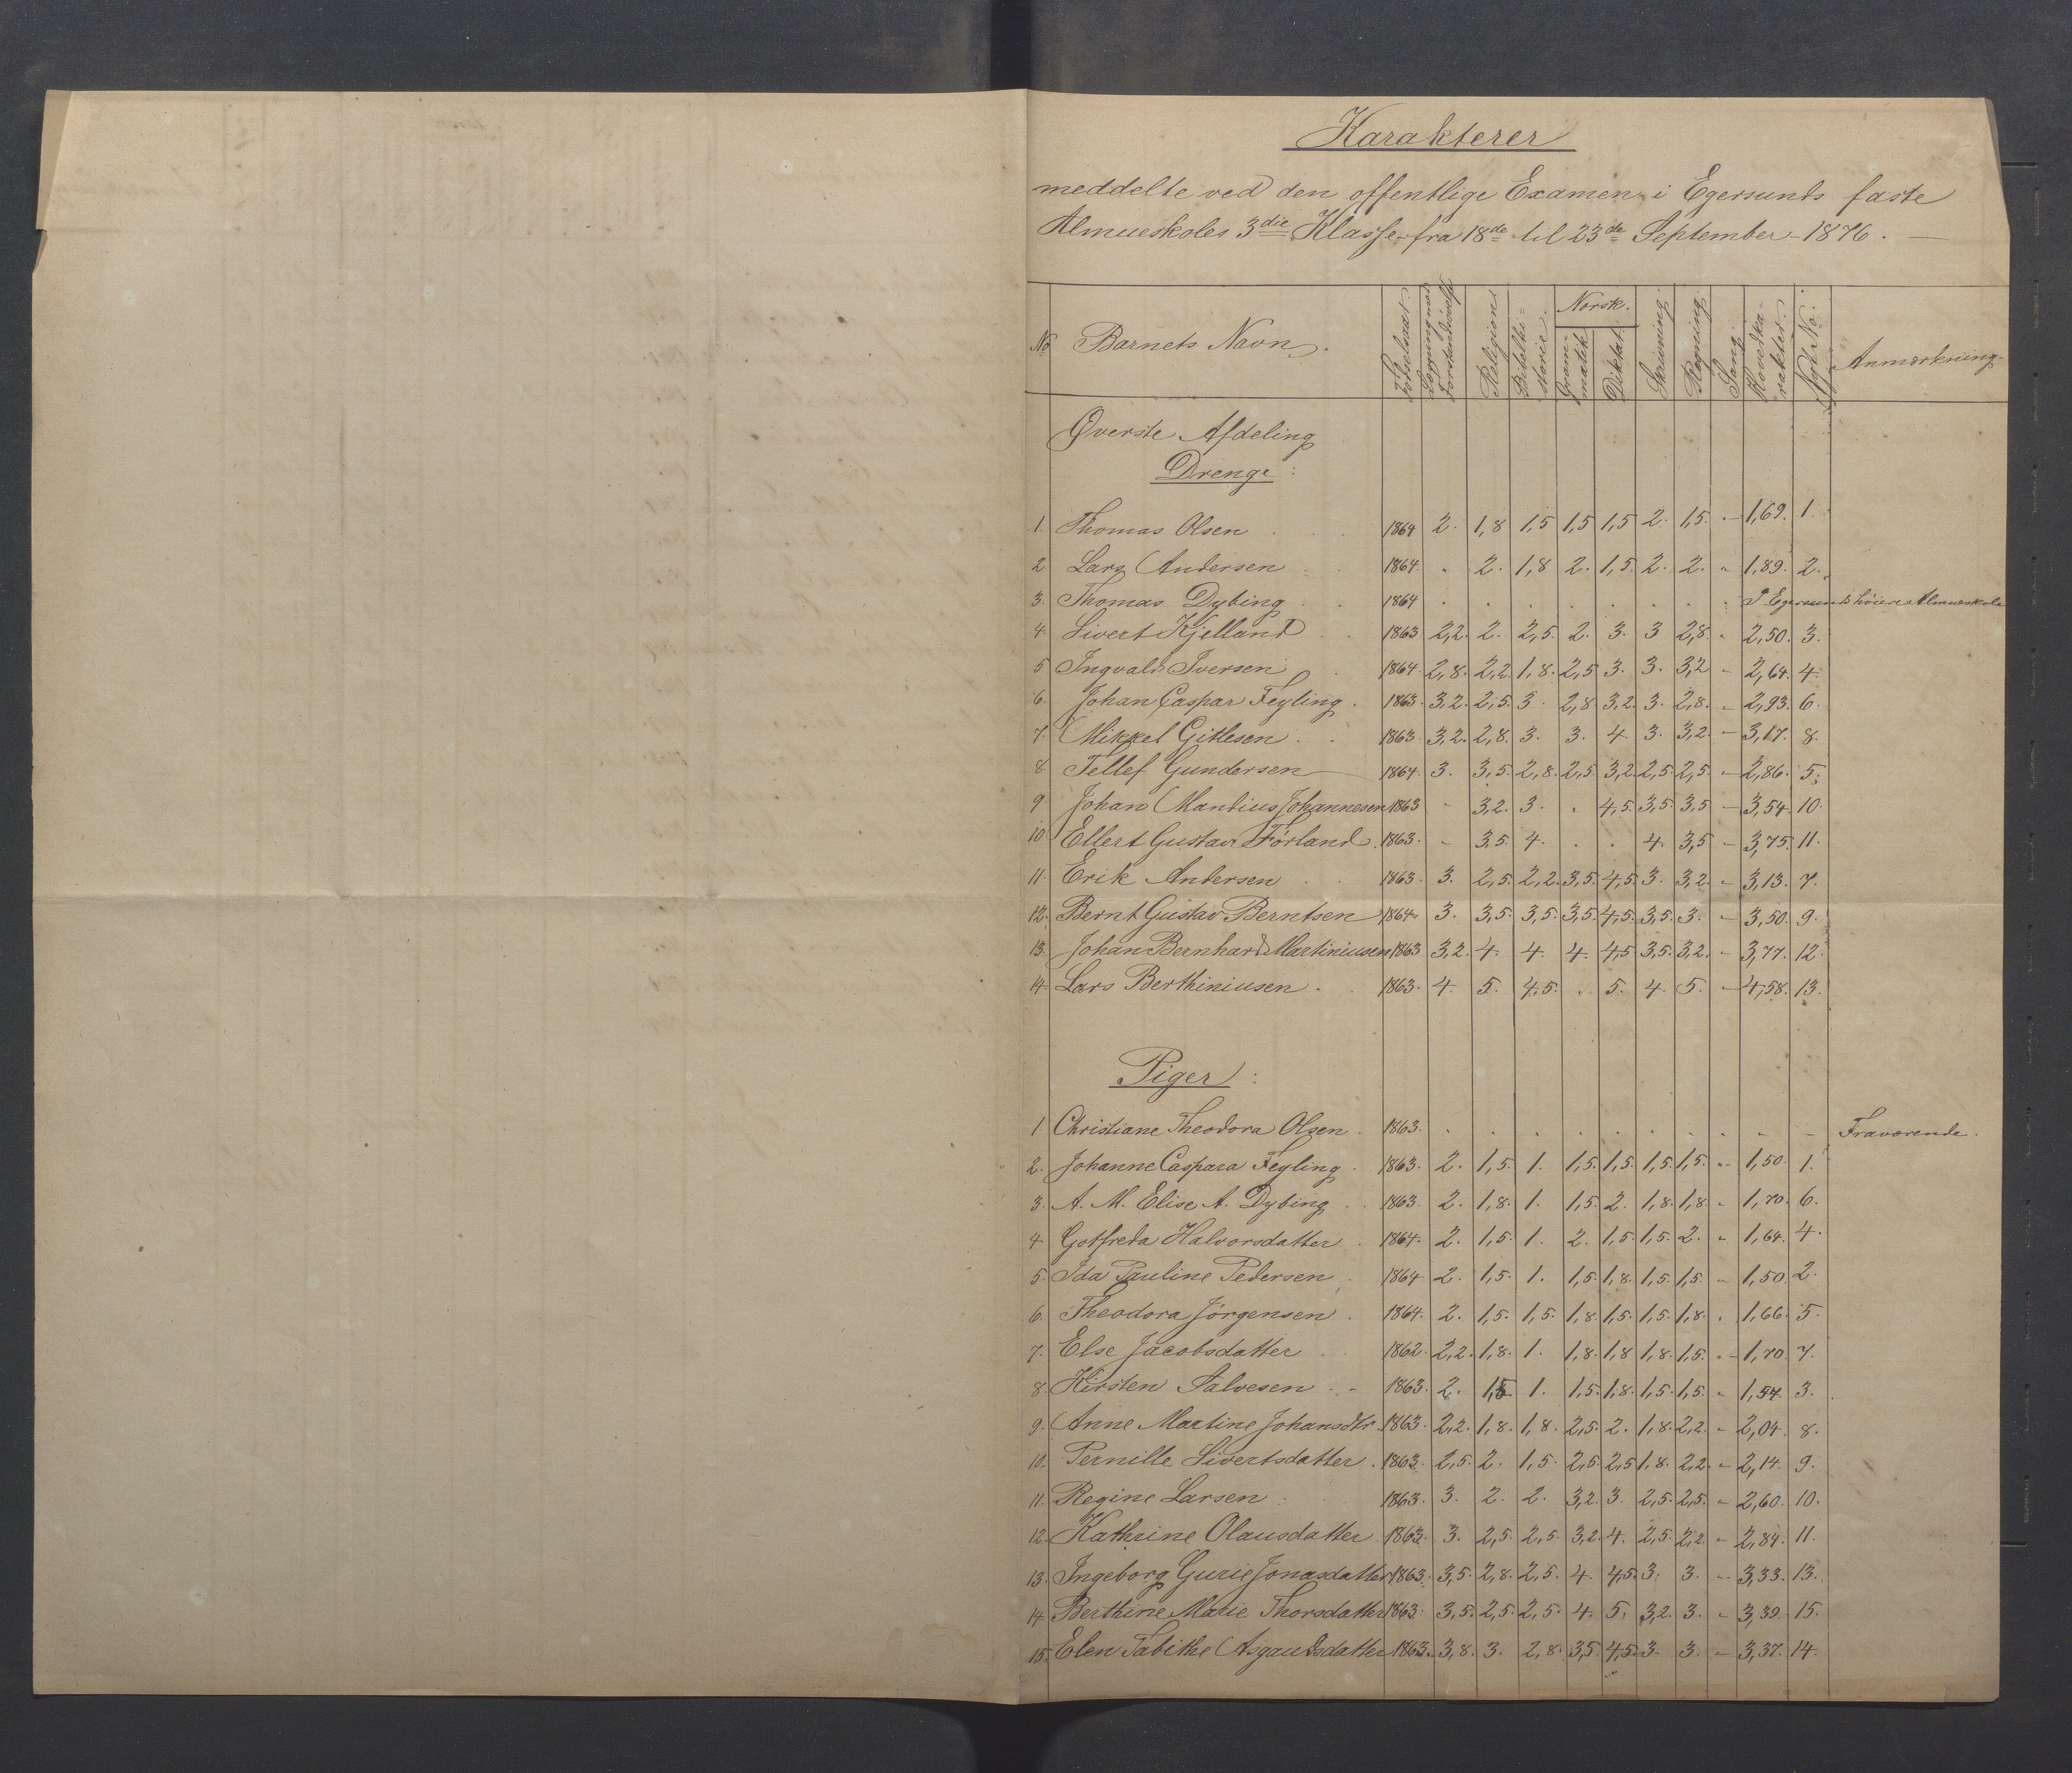 Karakterer
meddelte ved den offentlige Examen i Egersunds faste
Almueskoles 3die Klasse fra 18de til 23de September 1876.
No Barnets Navn. Fødselsaar. Religion Bibelhi-storie. Norsk. Gram-matik Diktat Skrivning. Regning. Sang. Hovedka-rakter. Nyt No. Anmærkning.
Øverste Afdeling
Drenge:
1. Thomas Olsen 1864 2. 1,8 1,5 1,5 1,5 2. 1,5. - 1,69. 1.
2. Lars Andersen 1864. . 2. 1,8 2. 1,5. 2. 2. " 1,89. 2.
3. Thomas Dybing 1864 . . . . . . . . I Egersunds høiere Almueskole
4. Sivert Kjelland 1863 2,2. 2. 2,5. 2. 3. 3 2,8. " 2,50. 3.
5 Ingvald Iversen 1864. 2,8. 2,2. 1,8. 2,5 3. 3. 3,2 - 2,64. 4.
6. Johan Caspar Feyling. 1863. 3,2. 2,5. 3. 2,8 3,2. 3. 2,8. - 2,93. 6.
7. Mikkel Gitlesen 1863. 3,2. 2,8. 3. 3. 4. 3. 3,2. - 3,17. 8.
8. Tellef Gundersen 1864. 3. 3,5. 2,8. 2,5. 3,2. 2,5. 2,5. - 2,86. 5.
9 Johan Mandius Johannesen 1863 - 3,2. 3. . 4,5. 3,5. 3,5 - 3,54. 10.
10. Ellert Gustav Førland. 1863. - 3,5. 4. . . 4. 3,5 - 3,75. 11.
11. Erik Andersen 1863. 3. 2,5. 2,2. 3,5. 4,5. 3. 3,2. - 3,13. 7.
12. Bernt Gustav Berntsen 1864. 3. 3,5. 3,5. 3,5. 4,5. 3,5. 3. - 3,50. 9.
13. Johan Bernhard Martiniusen 1863 3,2. 4. 4. 4. 4,5 3,5. 3,2. - 3,77. 12.
14. Lars Berthiniusen 1863. 4. 5. 4,5. . 5. 4. 5. - 4,58. 13.
Piger:
1. Christiane Theodora Olsen. 1863. . . . . . . . . - - Fraværende.
2. Johanne Caspara Feyling. 1863. 2. 1,5. 1. 1,5. 1,5. 1,5. 1,5. - 1,50. 1.
3. A. M. Elise A. Dybing 1863. 2. 1,8. 1. 1,5. 2. 1,8. 1,8. - 1,70. 6.
4. Gotfreda Halvorsdatter 1864. 2. 1,5. 1. 2. 1,5. 1,5. 2. " 1,64. 4.
5. Ida Pauline Pedersen. 1864. 2. 1,5. 1. 1,5. 1,8. 1,5. 1,5. - 1,50. 2.
6. Theodora Jørgensen. 1864. 2. 1,5. 1,5. 1,8. 1,5. 1,5. 1,8. . 1,66. 5.
7. Else Jacobsdatter 1862. 2,2. 1,8. 1. 1,8. 1,8 1,8. 1,5. - 1,70. 7.
8. Kirsten Salvesen 1863. 2. 1,5 1. 1,5. 1,8. 1,5. 1,5. - 1,54. 3.
9. Anne Martine Johansdtr. 1863. 2,2. 1,8. 1,8. 2,5. 2. 1,8. 2,2. - 2,04. 8.
10. Pernille Sivertsdatter. 1863. 2,5. 2. 1,5. 2,5. 2,5 1,8. 2,2. - 2,14. 9.
11. Regine Larsen 1863. 3. 2. 2. 3,2. 3. 2,5. 2,5. - 2,60. 10.
12. Kathrine Olausdatter 1863. 3. 2,5. 2,5. 3,2. 4. 2,5. 2,2. - 2,84. 11.
13. Ingeborg Gurie Jonasdatter 1863. 3,5. 2,8. 2,5. 4. 4,5. 3. 3. - 3,33. 13.
14. Berthine Marie Thorsdatter 1863. 3,5. 2,5. 2,5. 4. 5. 3,2. 3. - 3,39. 15.
15. Elen Tabithe Asgautsdatter 1863. 3,8. 3. 2,8. 3,5 4,5. 3. 3. - 3,37. 14.